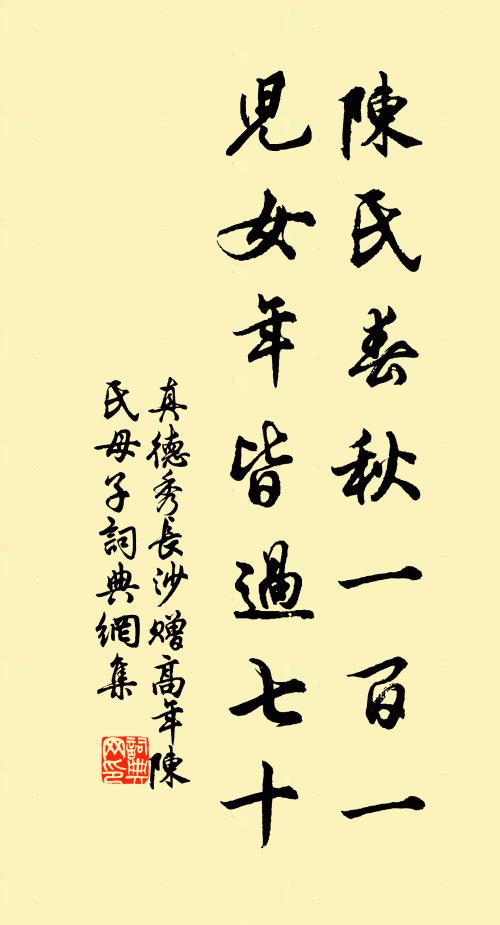 陳氏春秋一百一
兒女年皆過七十
真德秀長沙贈高年陳
氏母子詞典網集
詞典
网印